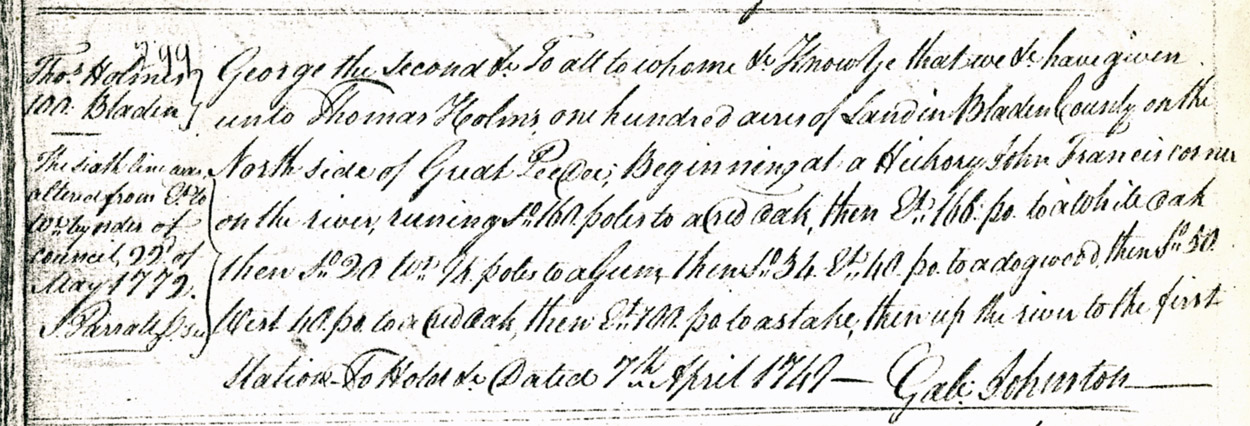 299
Thos. Holmes
100. Bladen
The sixth line was
altered from Et. to
Wt. by order of
council, 22d. of
May 1772.
George the Second &c To all to whome &c Know Ye that we &c have given
unto Thomas Holms, one hundred acres of Land in Bladen County on the
North side of Great PeeDee; Beginning at a Hickory John Francis corner
on the river, runing So. 160. poles to a red oak, then Et. 166. po. to a White oak
then So. 20. Wt. 74. poles to a Gum, then So. 34. Et. 40. po. to a dogwood, then So. 50.
West 40. po. to a red oak, then Et. 100. po. to a stake, then up the river to the first
Station To Hold &c Dated 7th. April 1749 — Gab: Johnston